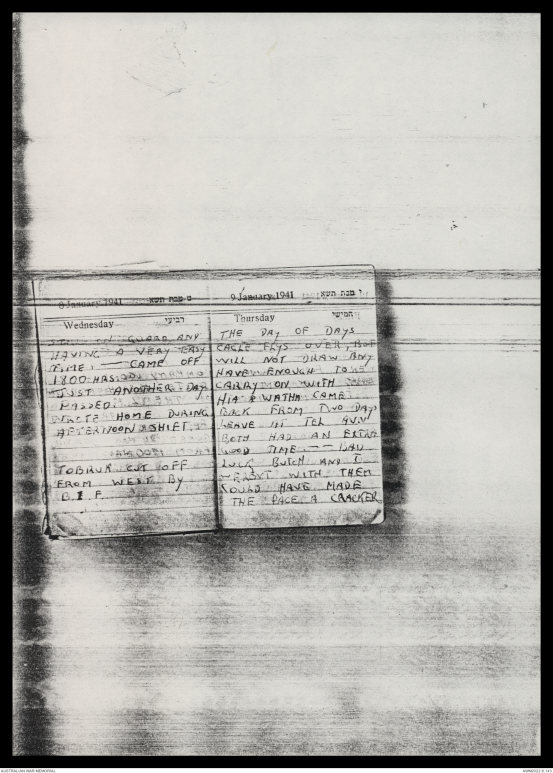 8 January 1941 ט טבת תשא
Wednesday רביעי
ON GUARD AND
HAVING A VERY EASY
TIME. — CAME OFF
1800 HRS.
JUST ANOTHER DAY
PASSED
WROTE HOME DURING
AFTERNOON SHIFT.
TOBRUK CUT OFF
FROM WEST BY
B.E.F.
9 January 1941 י טבת תשא
Thursday חמישי
THE DAY OF DAYS
EAGLE FLYS OVER, BUT
WILL NOT DRAW ANY
HAVE ENOUGH TO
CARRY ON WITH
HIA & WATHA CAME
BACK FROM TWO DAYS
LEAVE IN TEL AVIV
BOTH HAD AN EXTRA
GOOD TIME — BAD
LUCK BUTCH AND I
WITH THEM
COULD HAVE MADE
THE PACE A CRACKER
AUSTRALIAN WAR MEMORIAL